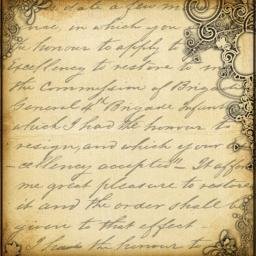 date a few m
in which you
the honour to apply to
Excellency to restore to m
the Commission of Brigad
General 4th Brigade Infant
which I had the honour to
resign, and which your ex
-cellency accepted" - It affor
me great pleasure to restore
it and the order shall be
given to that effect -
I have the honour to